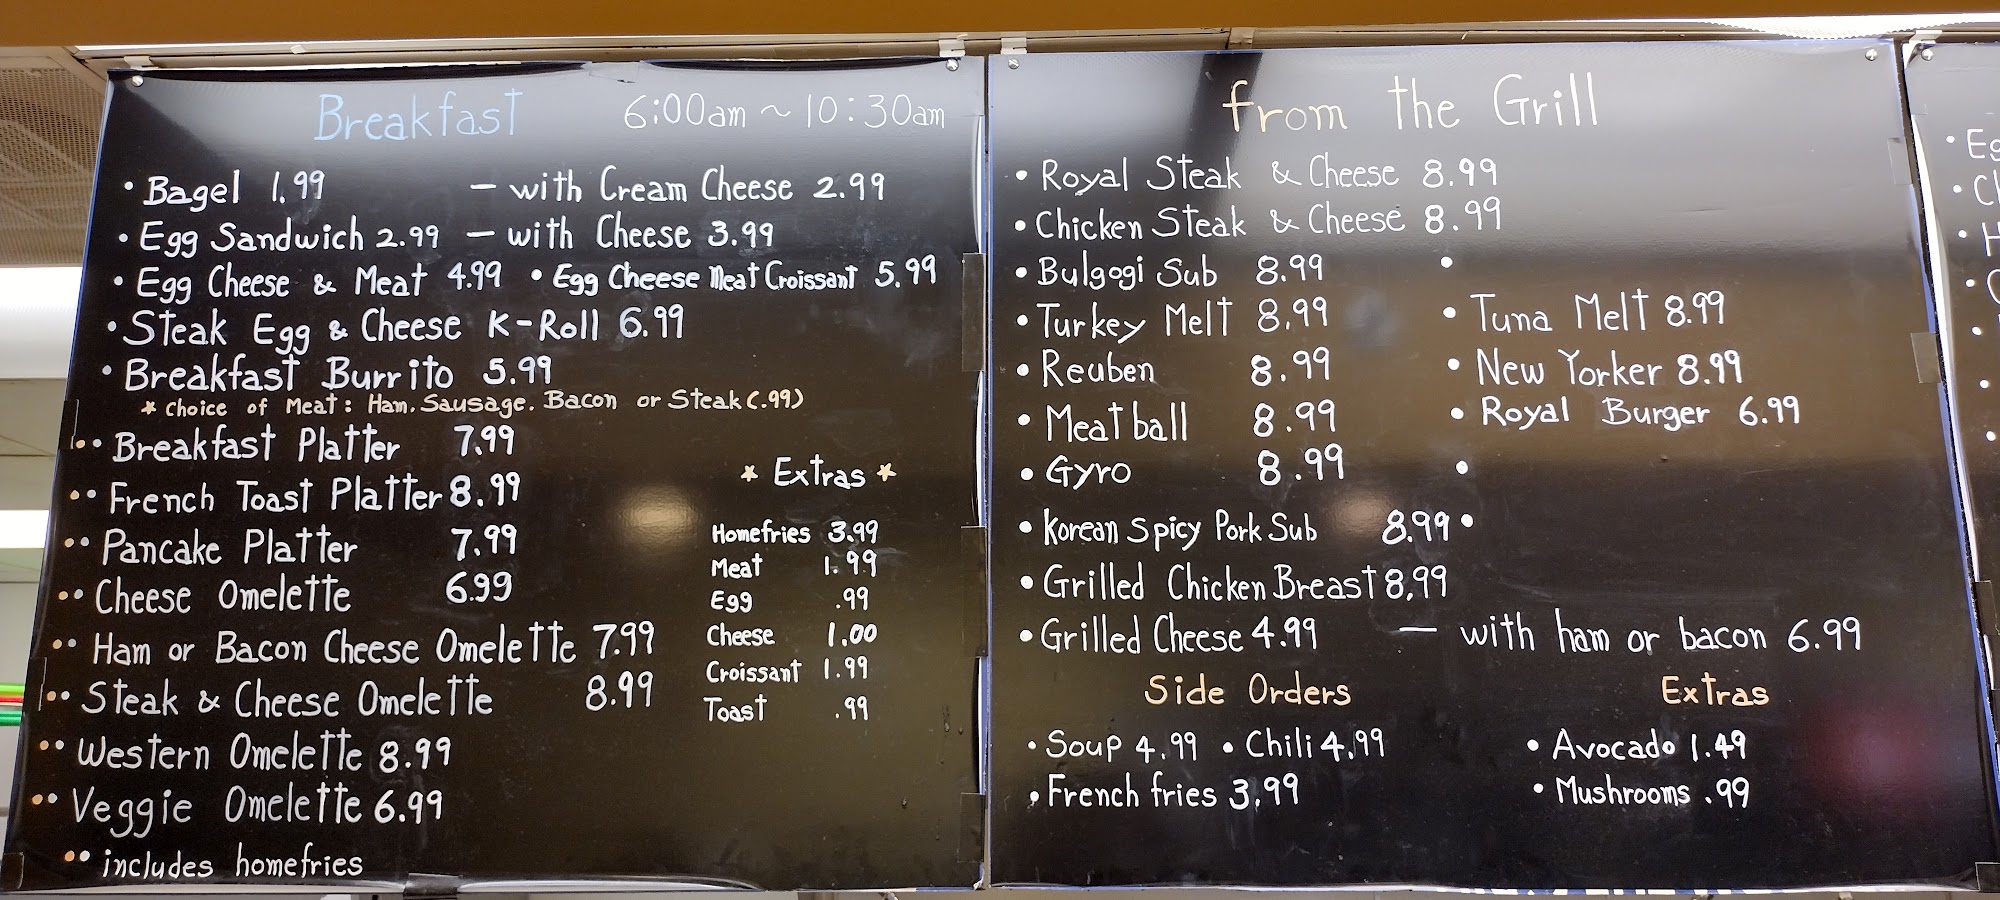 Breakfast 6:00am ~ 10:30am
• Bagel 1.99 — with Cream Cheese 2.99
• Egg Sandwich 2.99 — with Cheese 3.99
• Egg Cheese & Meat 4.99 • Egg Cheese Meat Croissant 5.99
• Steak Egg & Cheese K-Roll 6.99
• Breakfast Burrito 5.99
* Choice of Meat: Ham, Sausage. Bacon or Steak (.99)
•• Breakfast Platter 7.99
•• French Toast Platter 8.99
•• Pancake Platter 7.99
•• Cheese Omelette 6.99
•• Ham or Bacon Cheese Omelette 7.99
•• Steak & Cheese Omelette 8.99
•• Western Omelette 8.99
•• Veggie Omelette 6.99
•• includes homefries
* Extras *
Homefries 3.99
Meat 1.99
Egg .99
Cheese 1.00
Croissant 1.99
Toast .99
from the Grill
• Royal Steak & Cheese 8.99
• Chicken Steak & Cheese 8.99
• Bulgogi Sub 8.99 •
• Turkey Melt 8.99 • Tuna Melt 8.99
• Reuben 8.99 • New Yorker 8.99
• Meatball 8.99 • Royal Burger 6.99
• Gyro 8.99 •
• Korean Spicy Pork Sub 8.99 •
• Grilled Chicken Breast 8.99
• Grilled Cheese 4.99 — with ham or bacon 6.99
Side Orders
• Soup 4.99 • Chili 4.99
• French fries 3.99
Extras
• Avocado 1.49
• Mushrooms .99